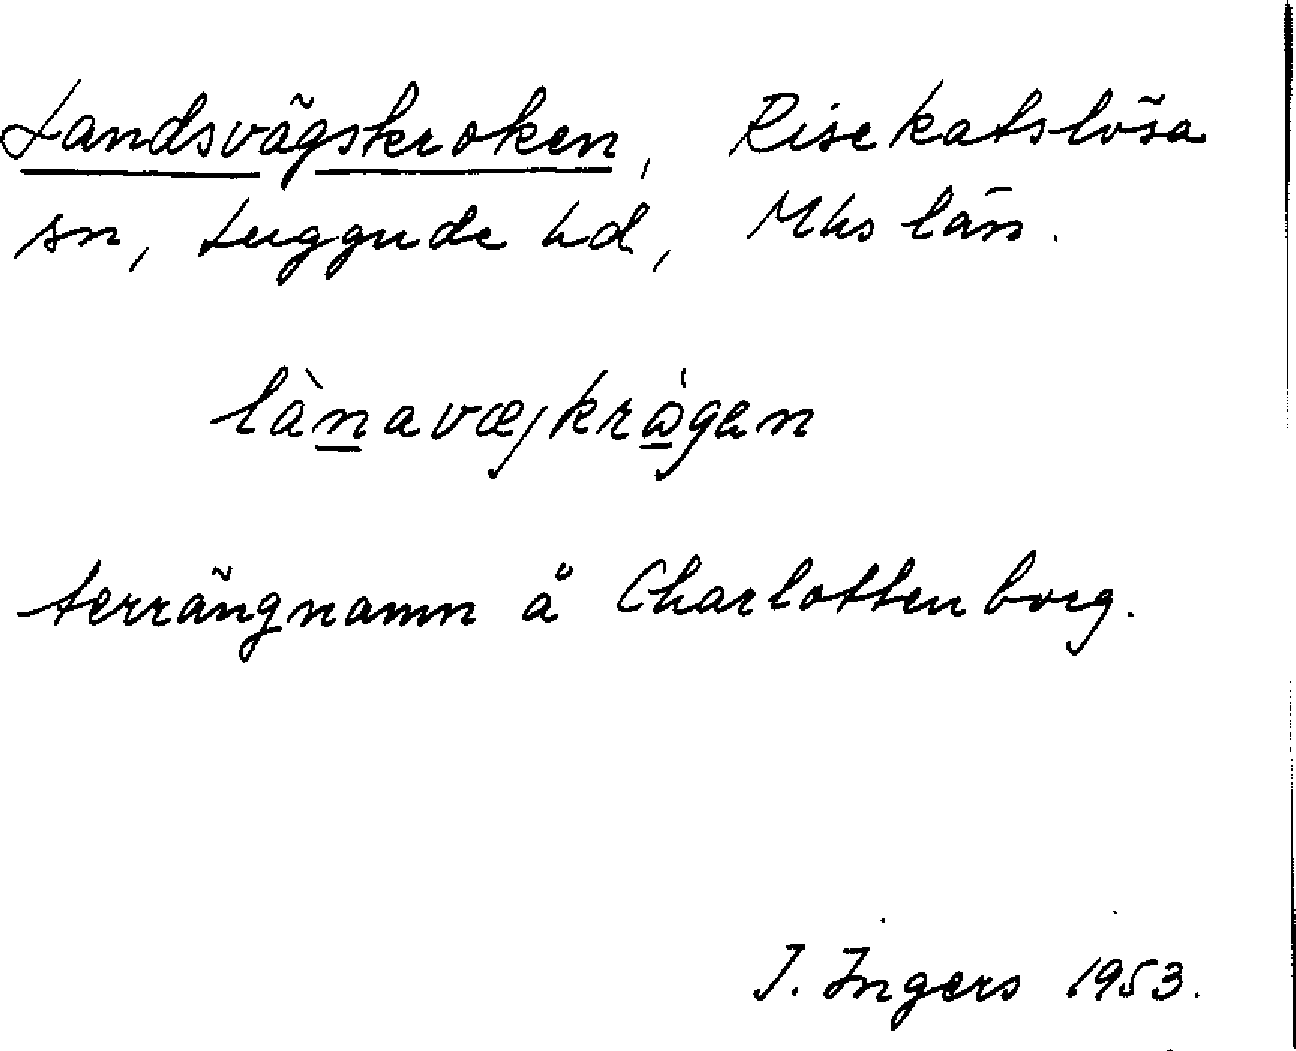 Landsvägskroken, Risekatslösa
sn, Luggude hd, Mhs län.
lànavæjkrȯgen
terrängnamn å Charlottenborg.
I. Ingers 1953.